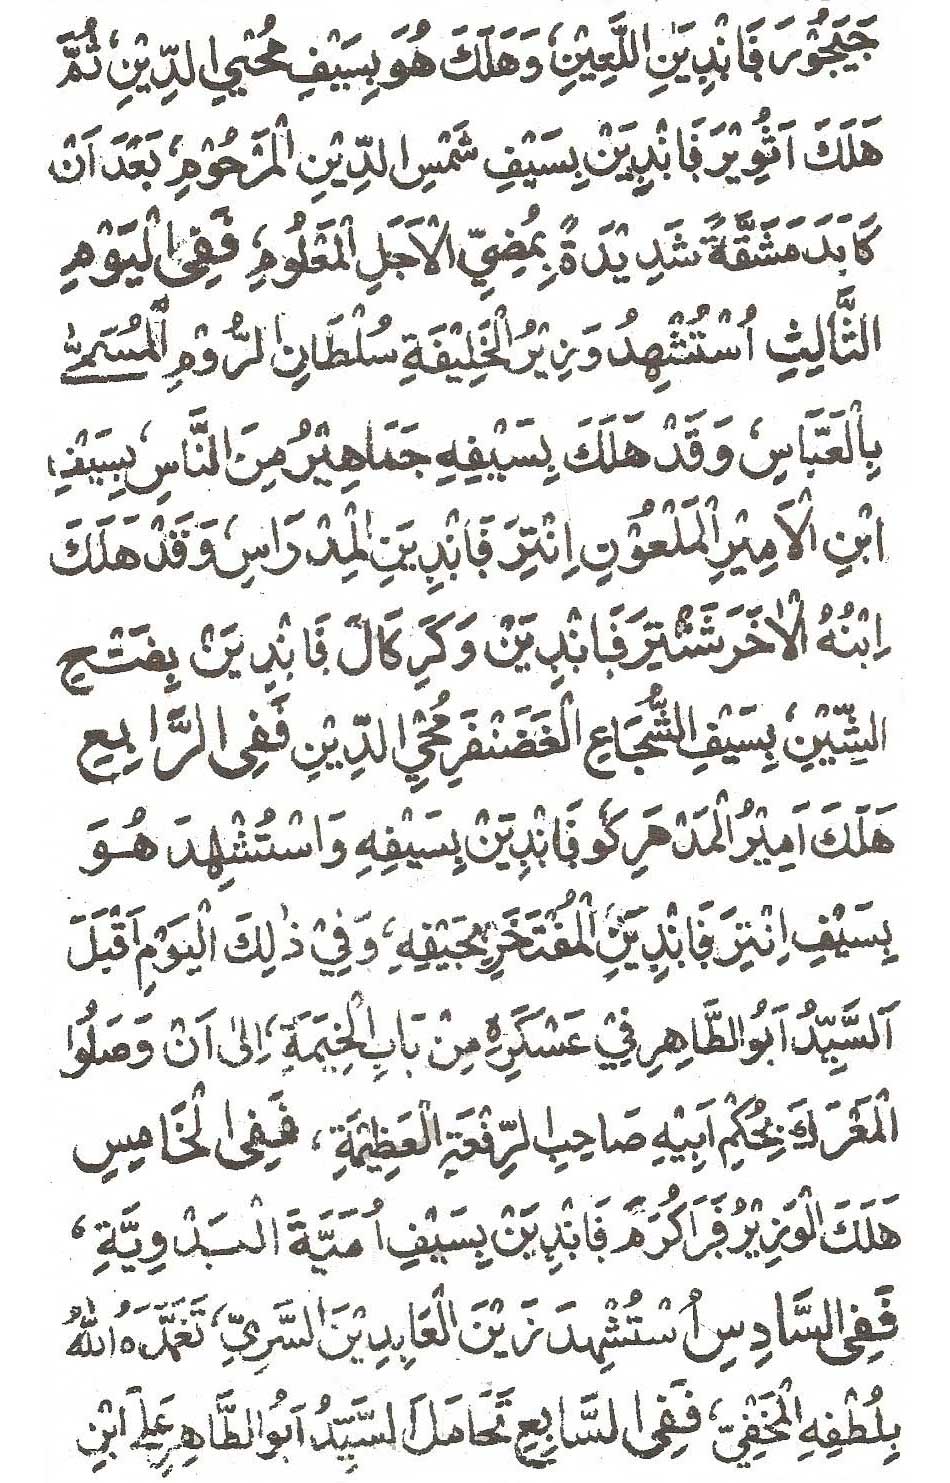 جَيَجُوْرَ فَانْدِيَنِ اللَّعِيْنِ، وَهَلَكَ هُوَ بِسَيْفِ مُحْيِي الدِّيْنِ، ثُمَّ
هَلَكَ اَتُوِيْرَ فَانْدِيَنْ بِسَيْفِ شَمْسِ الدِّيْنِ الْمَرْحُوْمِ، بَعْدَ اَنْ
كَابَدَ مَشَقَّةً شَدِيْدَةً بِمُضِيِّ الْاَجَلِ الْمَعْلُوْمِ، فَفِى الْيَوْمِ
الثَّالِثِ اُسْتُشْهِدُ وَزِيْرُ الْخَلِيْفَةِ سُلْطَانِ الرُّوْمِ الْمُسَمّٰى
بِالْعَبَّاسِ، وَقَدْ هَلَكَ بِسَيْفِهِ جَمَاهِيْرُ مِنَ النَّاسِ، بِسَيْفِ
ابْنِ الْاَمِيْرِ الْمَلْعُوْنِ اِنْتِرَ فَانْدِيَنِ الْمِدْرَاسِ، وَقَدْ هَلَكَ
اِبْنُهُ الْاٰخَرَ شَنْتِرَ فَانْدِيَنْ وَكَرِكَالَ فَانْدِيَنْ بِفَتْحِ
السِّيْنِ، بِسَيْفِ الشُّجَاعِ الْغَضَنْفَرِ مُحْيِ الدِّيْنِ فَفِى الرَّابِعِ
هَلَكَ اَمِيْرُ الْمَدْهَرِ كَو فَانْدِيَنْ بِسَيْفِهِ وَاسْتُشْهِدَ هُوَ
بِسَيْفِ اِنْتِرَ فَانْدِيَنِ الْمُفْتَخَرِ بِحَيْفِهِ، وَفِيْ ذٰلِكَ الْيَوْمِ اَقْبَلَ
اَلسَّيِّدُ اَبُو الطَّاهِرِ فِيْ عَسْكَرِهِ مِنْ بَابِ الْخِيَمَةِ، اِلٰى اَنْ وَصَلُوْا
الْمَعْرَكَ بِحُكْمِ اَبِيْهِ صَاحِبِ الرِّفْعَةِ الْعَظِيْمَةِ، فَفِى الْخَامِسِ
هَلَكَ الْوَزِيْرُ فَرَاكُرَمَ فَانْدِيَنْ بِسَيْفِ اُمَيَّةَ الْبَدْوِيَّةِ،
فَفِى السَّادِسِ اُسْتُشْهِدَ زَيْنَ الْعَابِدِيْنَ السَّرِيِّ، تَغَمَّدَهُ اللّٰهُ
بِلُطْفِهِ الْخَفِيِّ، فَفِى السَّابِعِ تَحَامَلَ السَّيِّدُ اَبُو الطَّاهِرِ عَلَى ابْنِ